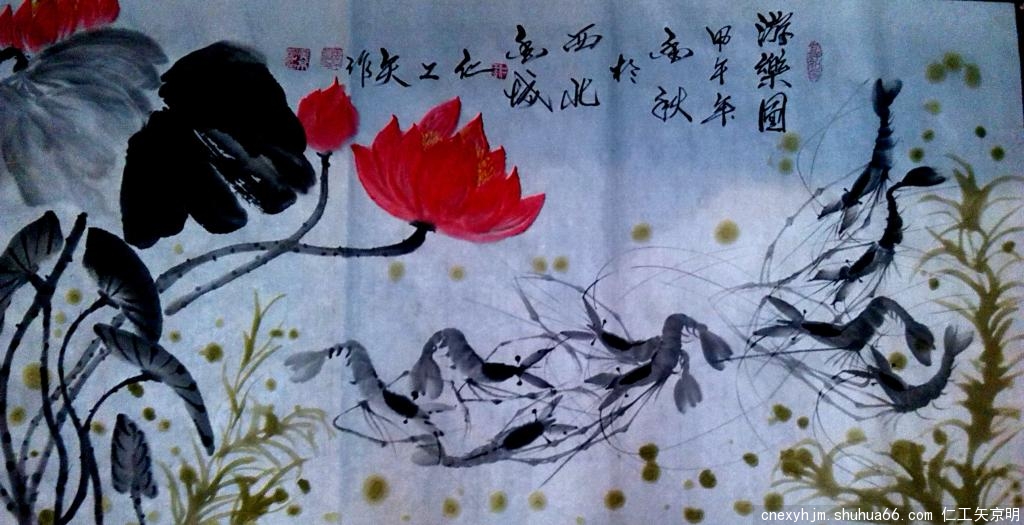 游樂圖
甲午年
金秋
於
西北
金城
仁工矢作
cnexyhjm.shuhua66.com 仁工矢京明